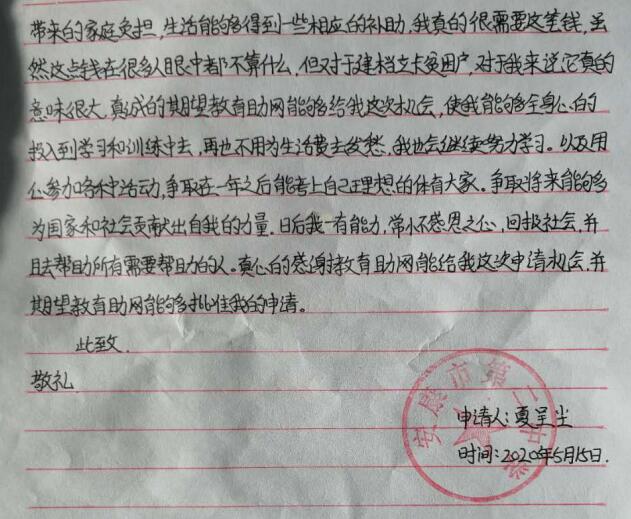 带来的家庭负担，生活能够得到一些相应的补助，我真的很需要这笔钱，虽
然这点钱在很多人眼中都不算什么，但对于建档立卡贫困户，对于我来说，它真的
意味很大，真成的期望教育助网能够给我这次机会，使我能够全身心的
投入到学习和训练中去，再也不用为生活费去发愁，我也会继续努力学习。以及用
心参加各种活动，争取在一年之后能考上自己理想的体育大家。争取将来能够
为国家和社会贡献出自我的力量，日后我一有能力，常怀感恩之心，回报社会，并
且去帮助所有需要帮助的人。真心的感谢教育助网能给我这次申请机会，并
期望教育助网能够批准我的申请。
此致
敬礼
安康市第二中学
申请人：夏呈尘
时间：2020年5月15日.